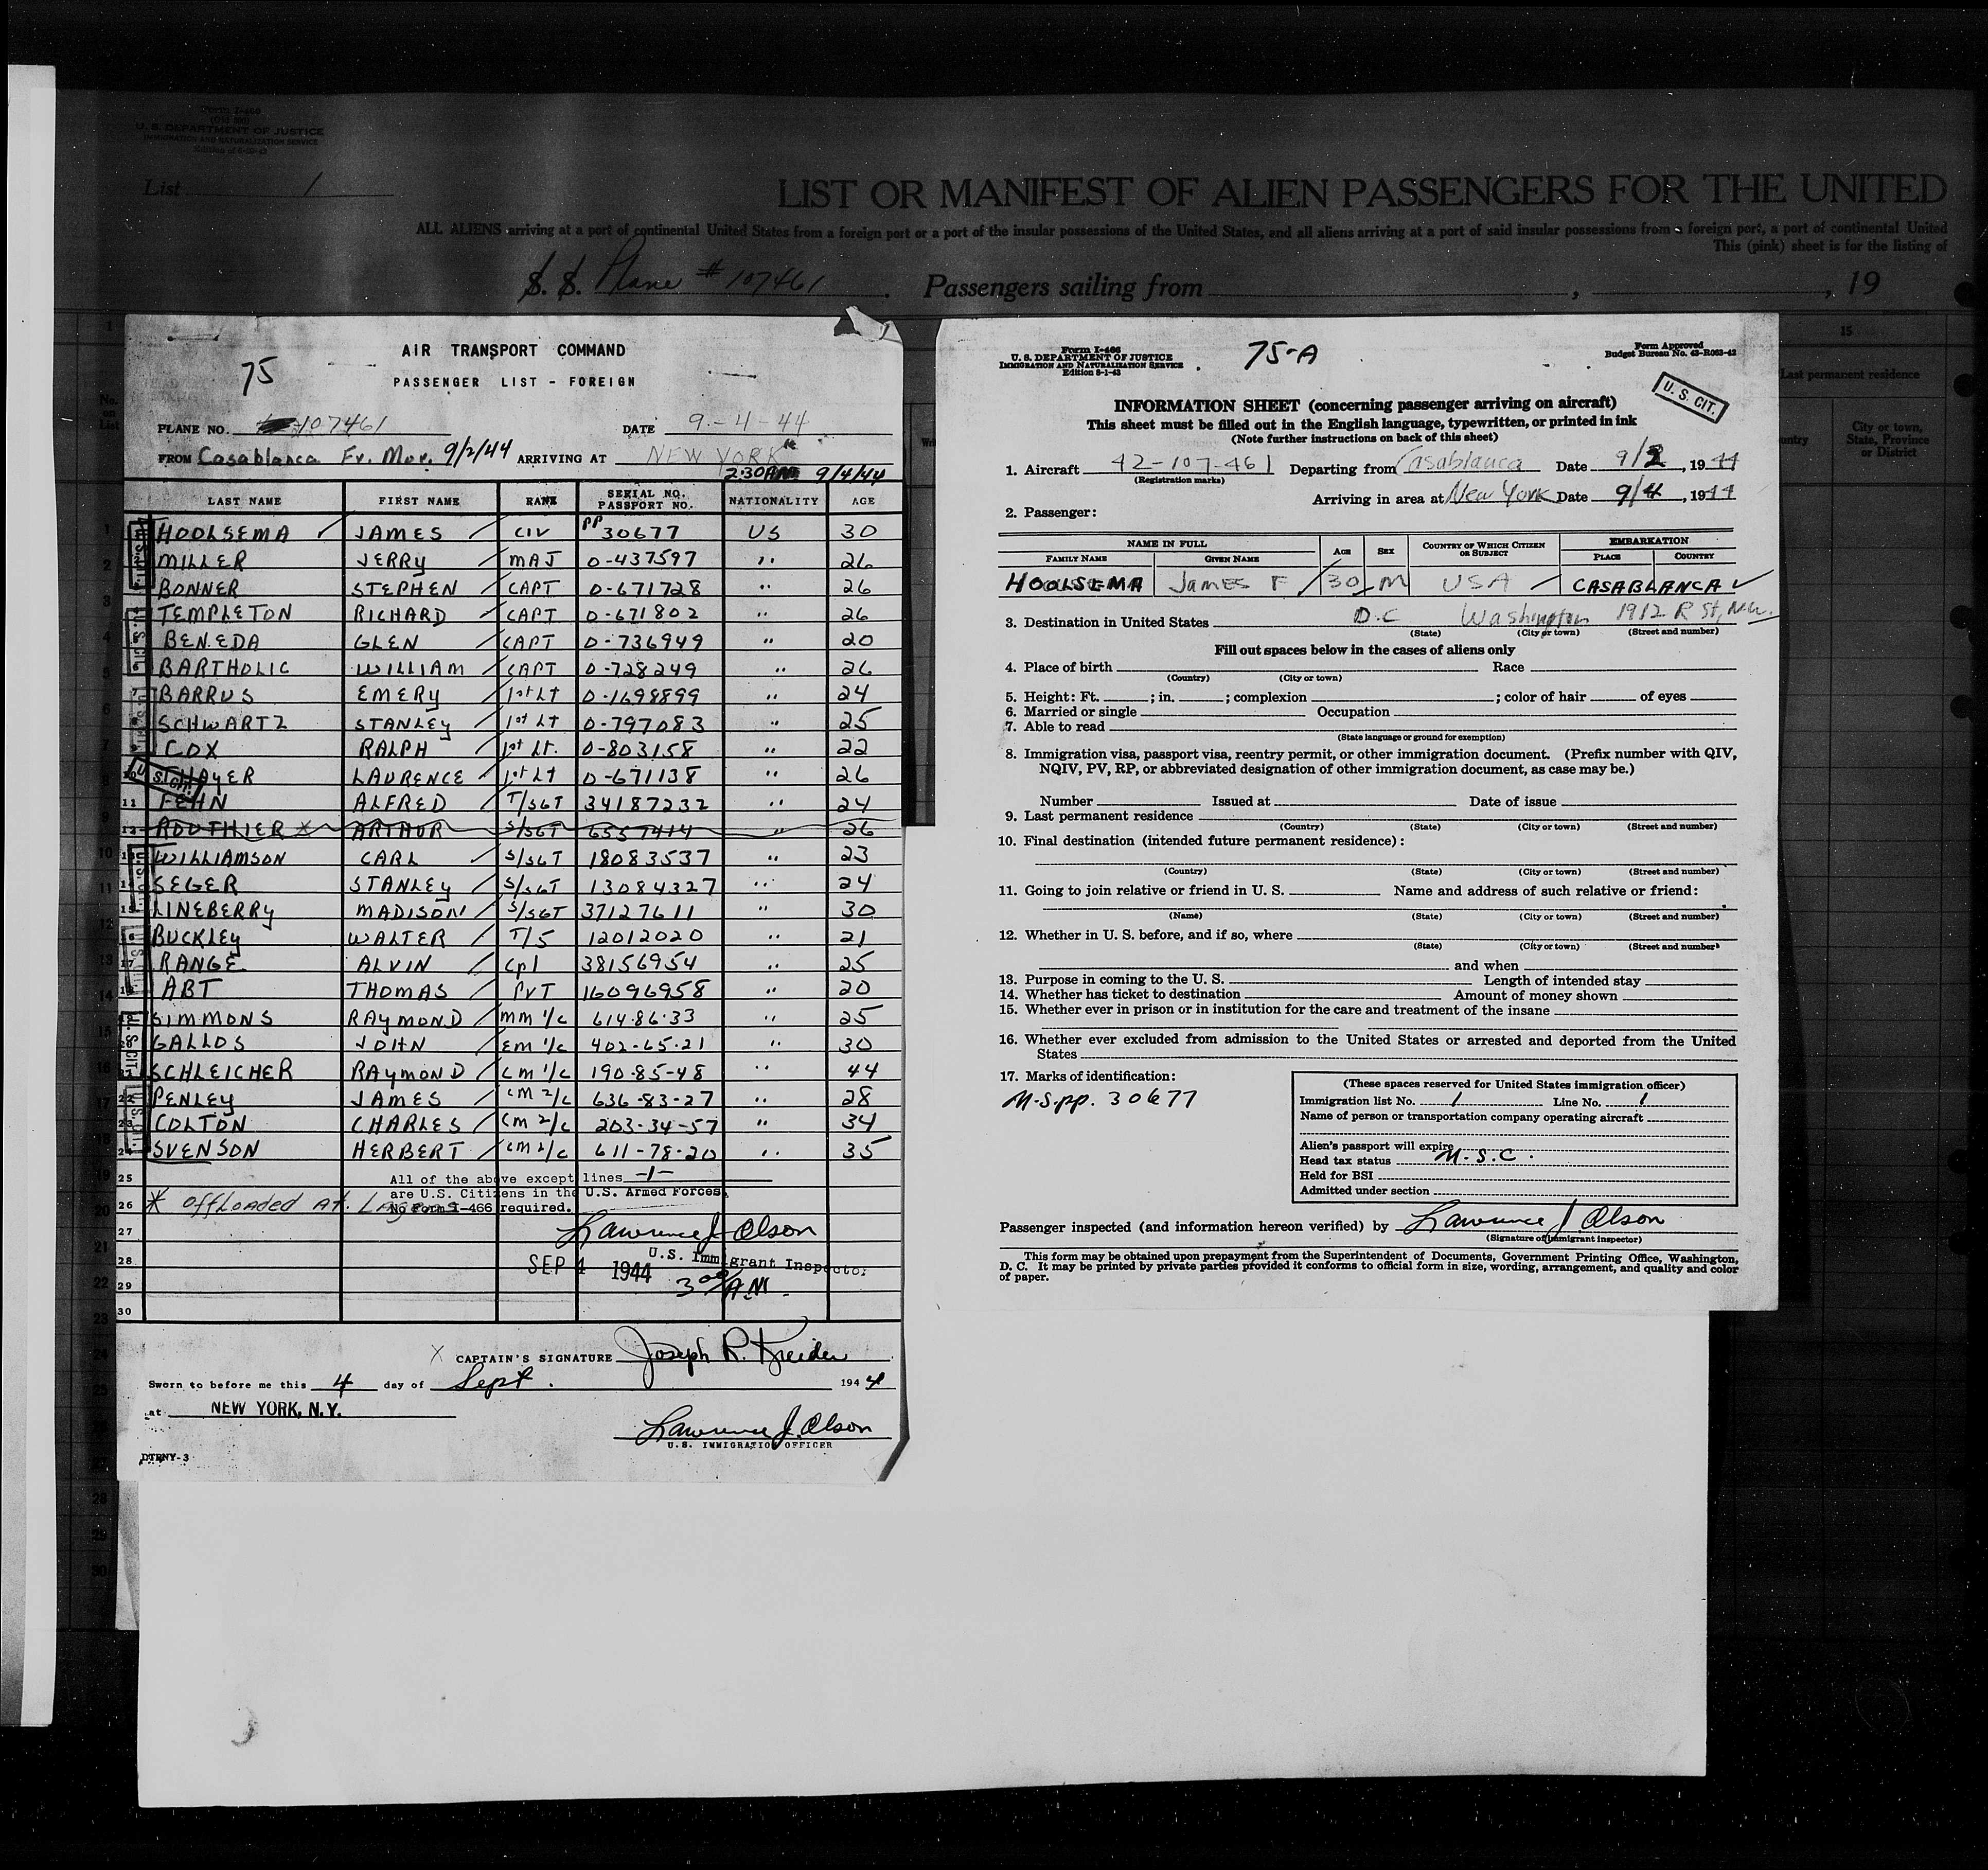 Form I-466
U. S. DEPARTMENT OF JUSTICE
IMMIGRATION AND NATURALIZATION SERVICE
List 1
LIST OR MANIFEST OF ALIEN PASSENGERS FOR THE UNITED
ALL ALIENS arriving at a port of continental United States from a foreign port or a port of the insular possessions of the United States, and all aliens arriving at a port of said insular possessions from a foreign port, a port of continental United
This (pink) sheet is for the listing of
S. S. Plane # 107461 Passengers sailing from , , 19
15
Last permanent residence
City or town, State, Province or District
No. on List
75
AIR TRANSPORT COMMAND
PASSENGER LIST - FOREIGN
PLANE NO. 107461 DATE 9-4-44
FROM Casablanca Fr. Mor. 9/2/44 ARRIVING AT NEW YORK
2:30AM 9/4/44
LAST NAME FIRST NAME RANK SERIAL NO. PASSPORT NO. NATIONALITY AGE
HOOLSEMA JAMES CIV PP 30677 US 30
MILLER JERRY MAJ 0-437597 " 26
BONNER STEPHEN CAPT 0-671728 " 26
TEMPLETON RICHARD CAPT 0-671802 " 26
BENEDA GLEN CAPT 0-736949 " 20
BARTHOLIC WILLIAM CAPT 0-728249 " 26
7 BARRUS EMERY 1st Lt 0-1698899 " 24
SCHWARTZ STANLEY 1st Lt 0-797083 " 25
COX RALPH 1st Lt. 0-803158 " 22
10 THAYER LAURENCE 1st Lt 0-671138 " 26
11 FEHN ALFRED T/SGT 34187232 " 24
12 ROUTHIER * ARTHUR S/SGT 6557414 " 26
WILLIAMSON CARL S/SGT 18083537 " 23
SEGER STANLEY S/SGT 13084327 " 24
LINEBERRY MADISON S/SGT 37127611 " 30
16 BUCKLEY WALTER T/5 12012020 " 21
17 RANGE ALVIN Cpl 38156954 " 25
ABT THOMAS PVT 16096958 " 20
SIMMONS RAYMOND MM 1/C 614-86-33 " 25
GALLOS JOHN EM 1/C 402-65-21 " 30
SCHLEICHER RAYMOND CM 1/C 190-85-48 " 44
22 PENLEY JAMES CM 2/C 636-83-27 " 28
23 COLTON CHARLES CM 2/C 203-34-57 " 34
24 SVENSON HERBERT CM 2/C 611-78-20 " 35
25 All of the above except lines -1-
are U.S. Citizens in the U.S. Armed Forces.
26 * Offloaded At. No Form I-466 required.
27 Lawrence J. Olson
U.S. Immigrant Inspector
28 SEP 4 1944
29 3 00 AM.
30
X CAPTAIN'S SIGNATURE Joseph R. Kreider
Sworn to before me this 4 day of Sept. 1944
at NEW YORK, N.Y.
Lawrence J. Olson
U.S. IMMIGRATION OFFICER
DTRNY-3
Form I-466
U. S. DEPARTMENT OF JUSTICE
IMMIGRATION AND NATURALIZATION SERVICE
Edition 8-1-43
75-A
Form Approved
Budget Bureau No. 43-R063-42
U. S. CIT.
INFORMATION SHEET (concerning passenger arriving on aircraft)
This sheet must be filled out in the English language, typewritten, or printed in ink
(Note further instructions on back of this sheet)
1. Aircraft 42-107-461 Departing from Casablanca Date 9/2, 1944
(Registration marks)
Arriving in area at New York Date 9/4, 1944
2. Passenger:
NAME IN FULL AGE SEX COUNTRY OF WHICH CITIZEN OR SUBJECT EMBARKATION
FAMILY NAME GIVEN NAME PLACE COUNTRY
HOOLSEMA James F 30 M USA CASABLANCA
3. Destination in United States D.C Washington 1912 R St, NW.
(State) (City or town) (Street and number)
Fill out spaces below in the cases of aliens only
4. Place of birth Race
(Country) (City or town)
5. Height: Ft. ; in. ; complexion ; color of hair of eyes
6. Married or single Occupation
7. Able to read
(State language or ground for exemption)
8. Immigration visa, passport visa, reentry permit, or other immigration document. (Prefix number with QIV,
NQIV, PV, RP, or abbreviated designation of other immigration document, as case may be.)
Number Issued at Date of issue
9. Last permanent residence
(Country) (State) (City or town) (Street and number)
10. Final destination (intended future permanent residence):
(Country) (State) (City or town) (Street and number)
11. Going to join relative or friend in U. S. Name and address of such relative or friend:
(Name) (State) (City or town) (Street and number)
12. Whether in U. S. before, and if so, where
(State) (City or town) (Street and number)
and when
13. Purpose in coming to the U. S. Length of intended stay
14. Whether has ticket to destination Amount of money shown
15. Whether ever in prison or in institution for the care and treatment of the insane
16. Whether ever excluded from admission to the United States or arrested and deported from the United
States
17. Marks of identification:
pp. 30677
(These spaces reserved for United States immigration officer)
Immigration list No. 1 Line No. 1
Name of person or transportation company operating aircraft
Alien's passport will expire
Head tax status
Held for BSI
Admitted under section
Passenger inspected (and information hereon verified) by Lawrence J Olson
(Signature of immigrant inspector)
This form may be obtained upon prepayment from the Superintendent of Documents, Government Printing Office, Washington,
D. C. It may be printed by private parties provided it conforms to official form in size, wording, arrangement, and quality and color
of paper.